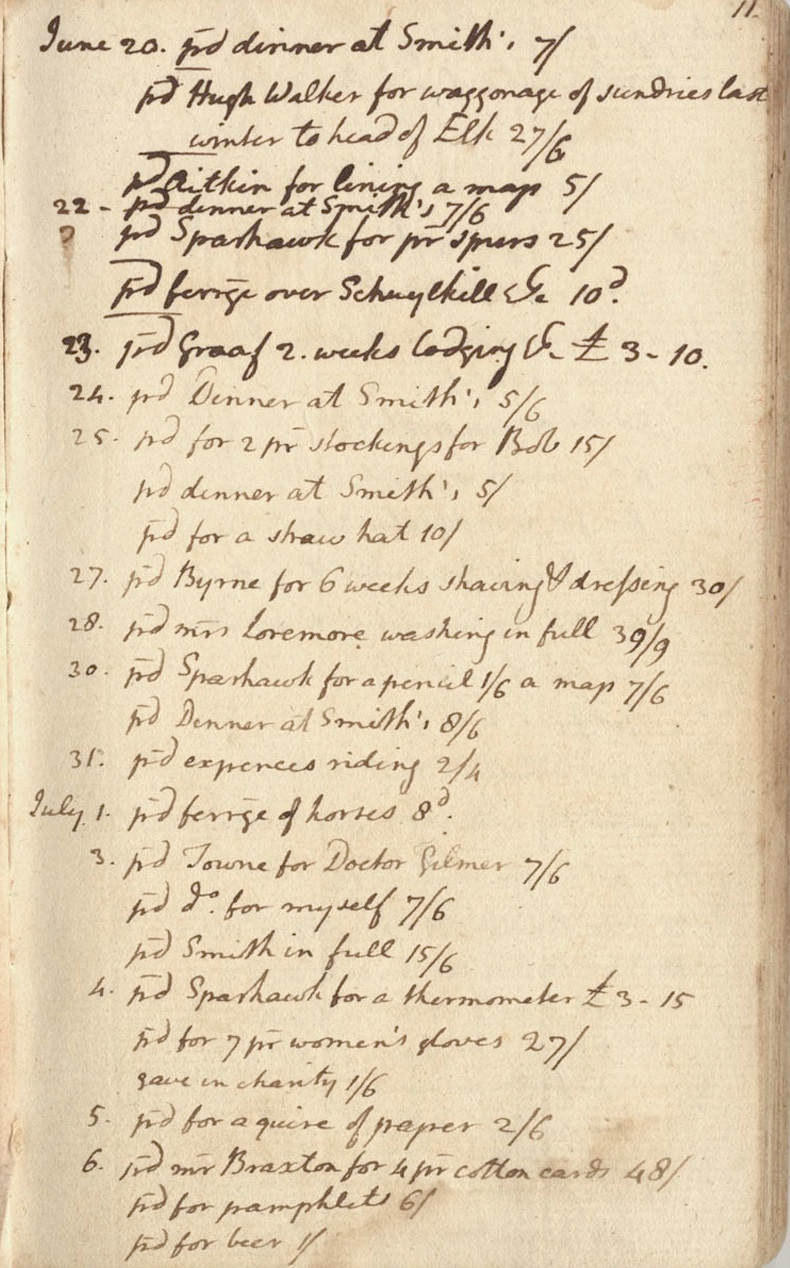 11.
June 20. pd dinner at Smith's 7/
pd Hugh Walker for waggonage of sundries last
winter to head of Elk 27/6
pd Aitkin for lining a map 5/
22 - pd dinner at Smith's 7/6
? pd Sparhawk for pr spurs 25/
pd ferrge over Schuylkill &c 10d.
23. pd Graaf 2. weeks lodging &c £ 3 - 10.
24. pd Dinner at Smith's 5/6
25. pd for 2 pr stockings for Bob 15/
pd dinner at Smith's 5/
pd for a straw hat 10/
27. pd Byrne for 6 weeks shaving & dressing 30/
28. pd mrs Loremore washing in full 39/9
30. pd Sparhawk for a pencil 1/6 a map 7/6
pd Dinner at Smith's 8/6
31. pd expences riding 2/4
July 1. pd ferrge of horses 8d.
3. pd Towne for Doctor Gilmer 7/6
pd do. for myself 7/6
pd Smith in full 15/6
4. pd Sparhawk for a thermometer £ 3 - 15
pd for 7 pr women's gloves 27/
gave in charity 1/6
5. pd for a quire of paper 2/6
6. pd mr Braxton for 4 pr cotton cards 48/
pd for pamphlets 6/
pd for beer 1/